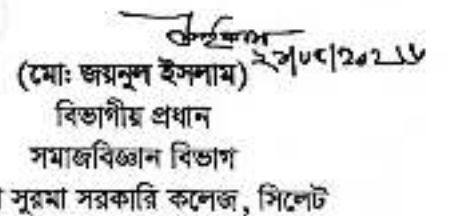 (মো: জয়নুল ইসলাম)
বিভাগীয় প্রধান
সমাজবিজ্ঞান বিভাগ
সুরমা সরকারি কলেজ, সিলেট